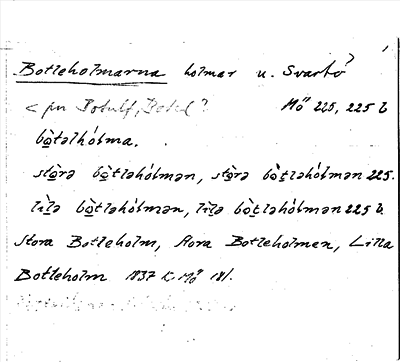 Botleholmarna holmar u. Svartö
< pn Botulf, Botel?
Mö 225, 225 b
bòtəlhólma.
stòrə bòtləhólmən, stòrə bòtləhólmən 225.
lìlə bòtləhólmən, lìlə bòtləhólmən 225 b.
Stora Botleholm, Stora Botleholmen, Lilla
Botleholm 1837 L Mö 181.